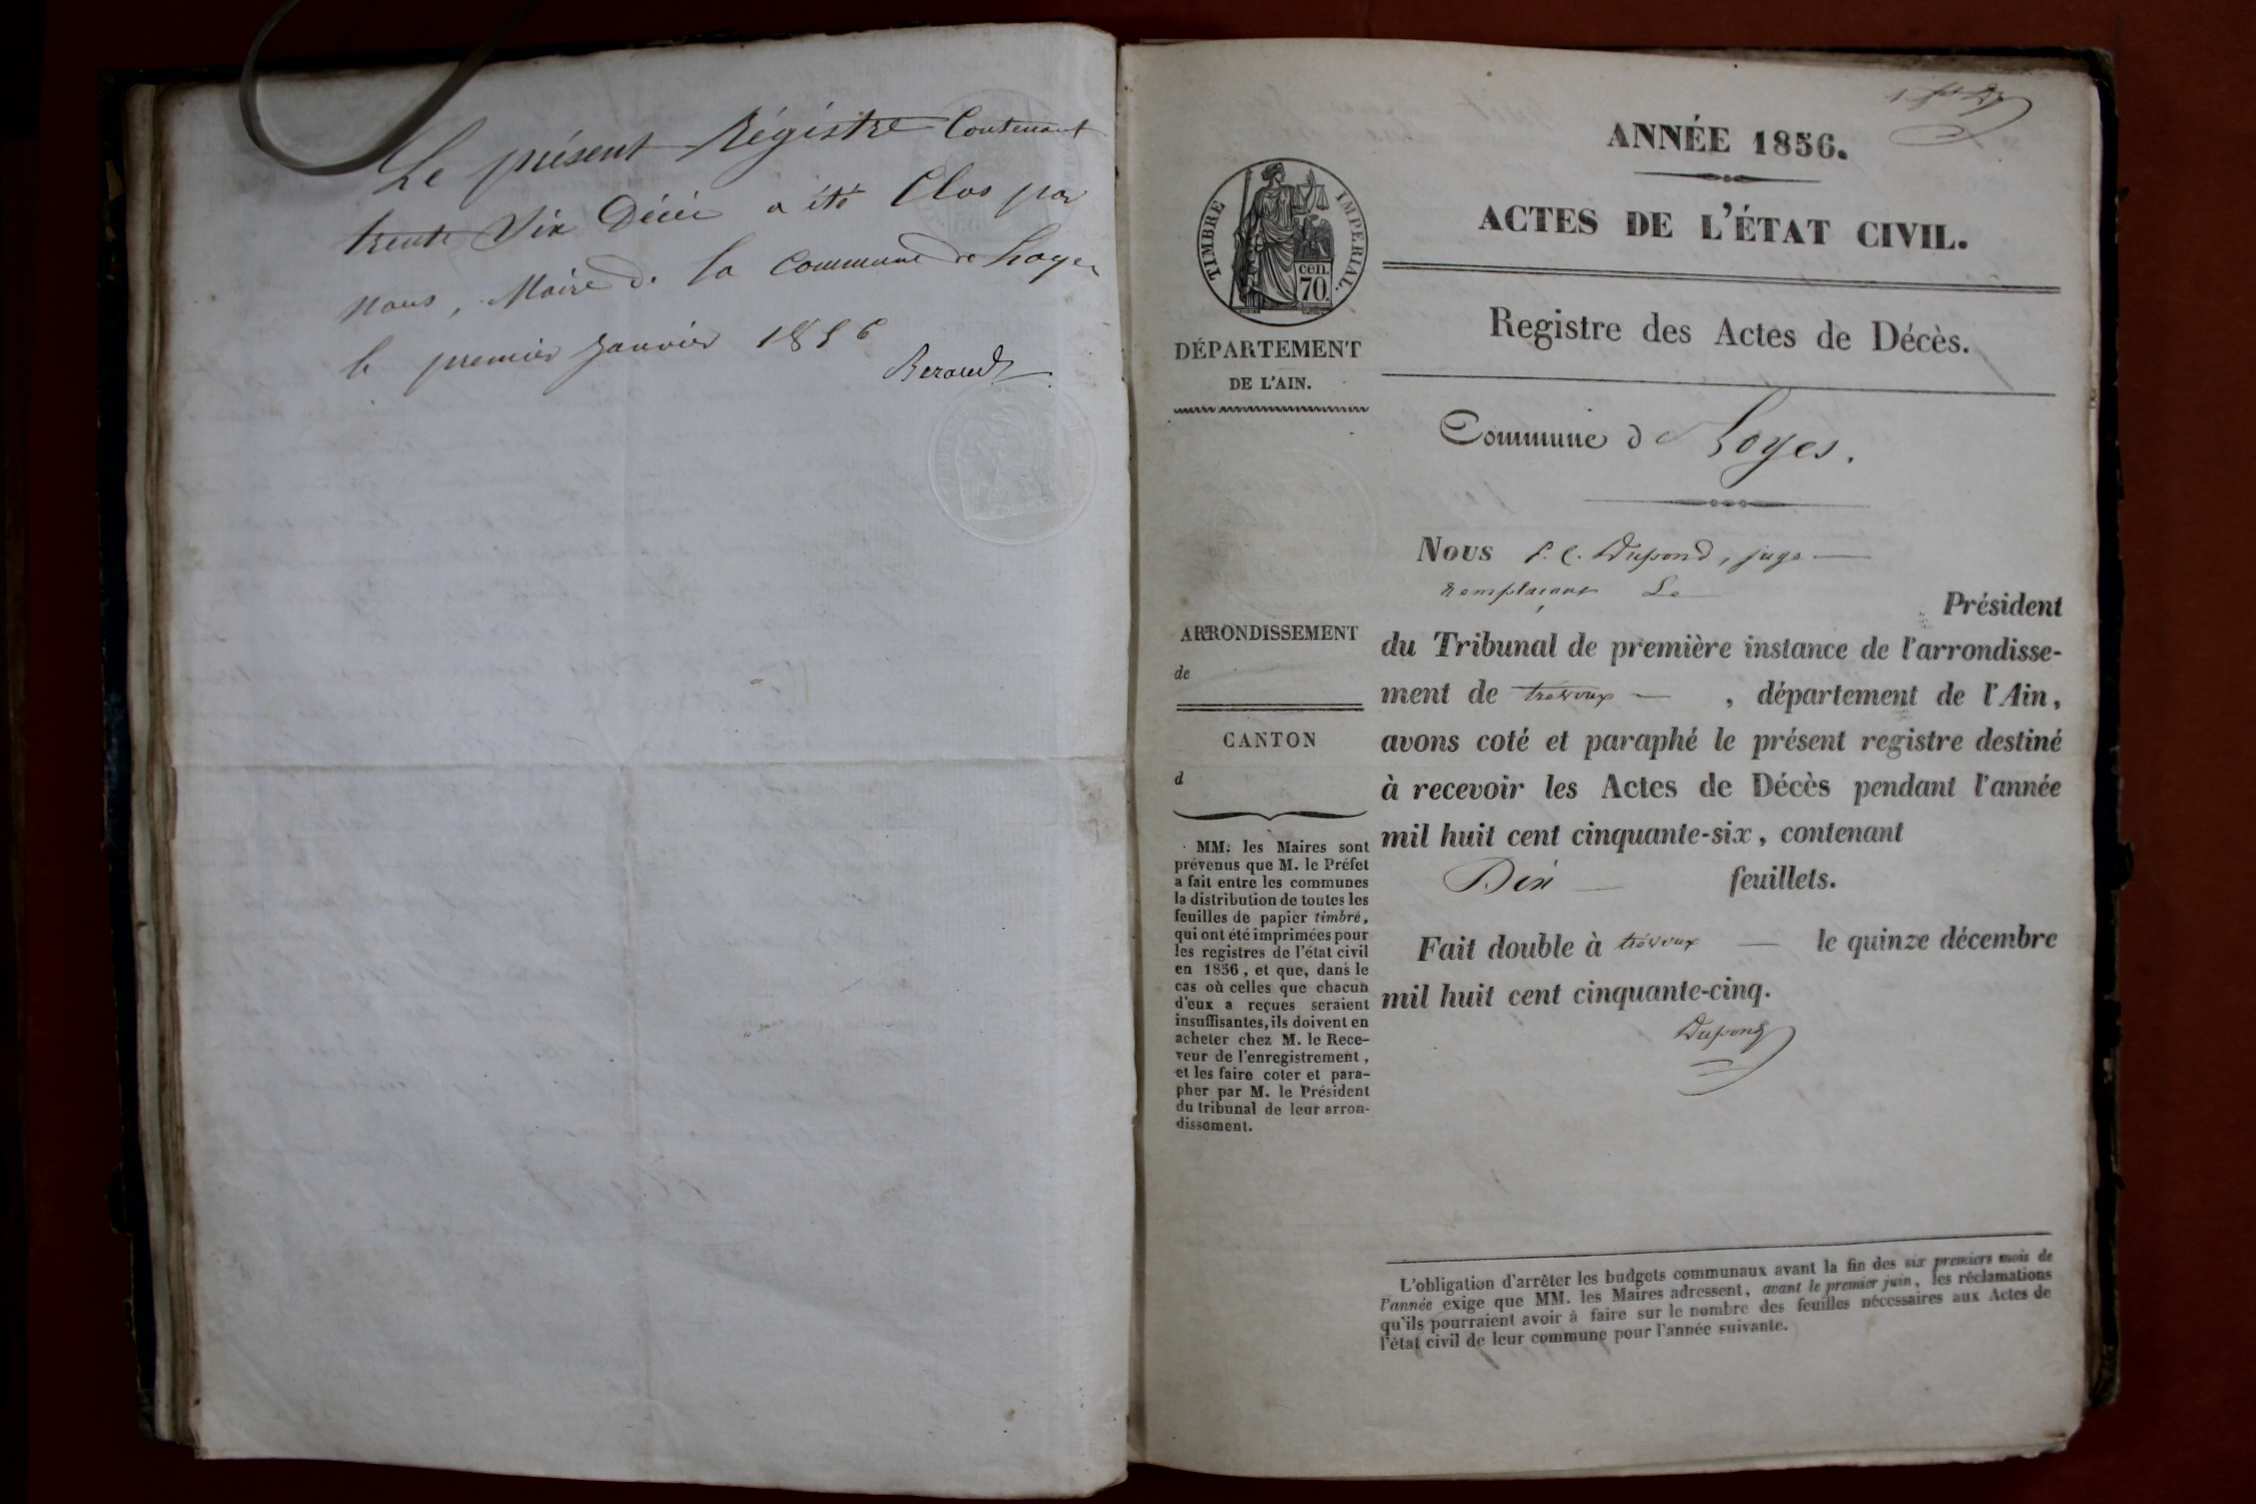 Le présent Régistre Contenant
trente Six Décès a été Clos par
nous, Maire de la Commune de Loyes
le premier Janvier 1856
Beraud
1er
ANNÉE 1856.
ACTES DE L'ÉTAT CIVIL.
TIMBRE IMPERIAL.
cen.
70.
DÉPARTEMENT
DE L'AIN.
Registre des Actes de Décès.
Commune de Loyes.
ARRONDISSEMENT
de
CANTON
d
MM. les Maires sont
prévenus que M. le Préfet
a fait entre les communes
la distribution de toutes les
feuilles de papier timbré,
qui ont été imprimées pour
les registres de l'état civil
en 1856, et que, dans le
cas où celles que chacun
d'eux a reçues seraient
insuffisantes, ils doivent en
acheter chez M. le Rece-
veur de l'enregistrement,
et les faire coter et para-
pher par M. le Président
du tribunal de leur arron-
dissement.
Nous P. C. Dupond, juge
remplaçant Le
Président
du Tribunal de première instance de l'arrondisse-
ment de trévoux, département de l'Ain,
avons coté et paraphé le présent registre destiné
à recevoir les Actes de Décès pendant l'année
mil huit cent cinquante-six, contenant
Dix feuillets.
Fait double à trévoux le quinze décembre
mil huit cent cinquante-cinq.
Dupond
L'obligation d'arrêter les budgets communaux avant la fin des six premiers mois de
l'année exige que MM. les Maires adressent, avant le premier juin, les réclamations
qu'ils pourraient avoir à faire sur le nombre des feuilles nécessaires aux Actes de
l'état civil de leur commune pour l'année suivante.